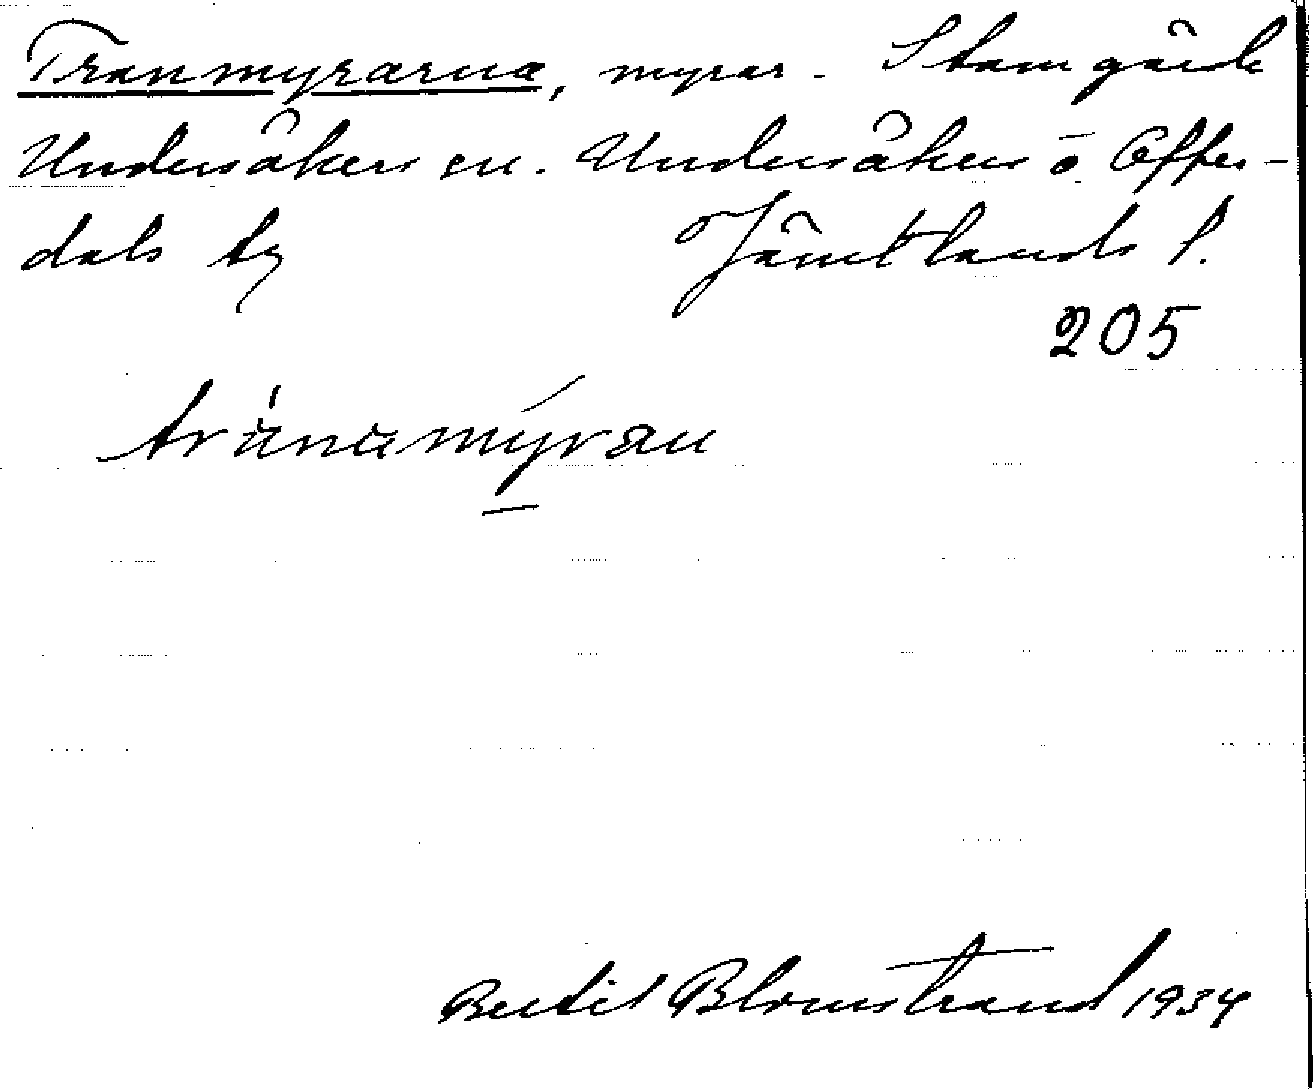 Tranmyrarna, myrar. Stamgärde
Undersåkers sn. Undersåkers o Offer-
dals tg Jämtlands l.
205
tránamýran
Bertil Blomstrand 1934